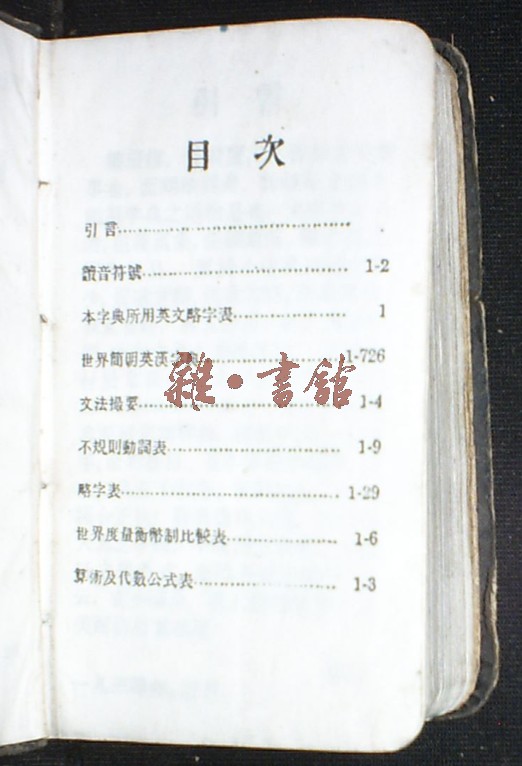 目次
引言..........
讀音符號.......... 1-2
本字典所用英文略字表.......... 1
世界簡明英漢字典.......... 1-726
雜·書館
文法撮要.......... 1-4
不規則動詞表.......... 1-9
略字表.......... 1-29
世界度量衡幣制比較表.......... 1-6
算術及代數公式表.......... 1-3